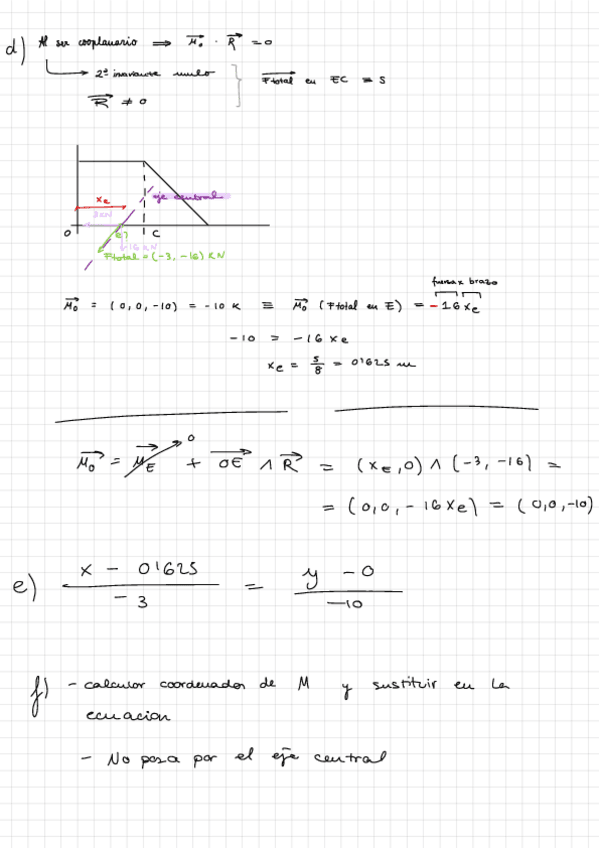 d) Al ser cooplanario ⟹ M₀ · R = 0
2º invariante nulo
R ≠ 0
Ftotal en EC = S
xe
eje central
3kN
O
E?
C
-16 kN
Ftotal = (-3, -16) kN
fuerza x brazo
M₀ = (0,0,-10) = -10 K ≡ M₀ (Ftotal en E) = -16 xe
-10 = -16 xe
xe = 5/8 = 0'625 m
M₀ = M_E 0 + OE ∧ R = (xe,0) ∧ (-3, -16) =
= (0,0,-16xe) = (0,0,-10)
e) x - 0'625 / -3 = y - 0 / -10
f) - calculor coordenados de M y sustituir en la
ecuacion
- No pasa por el eje central